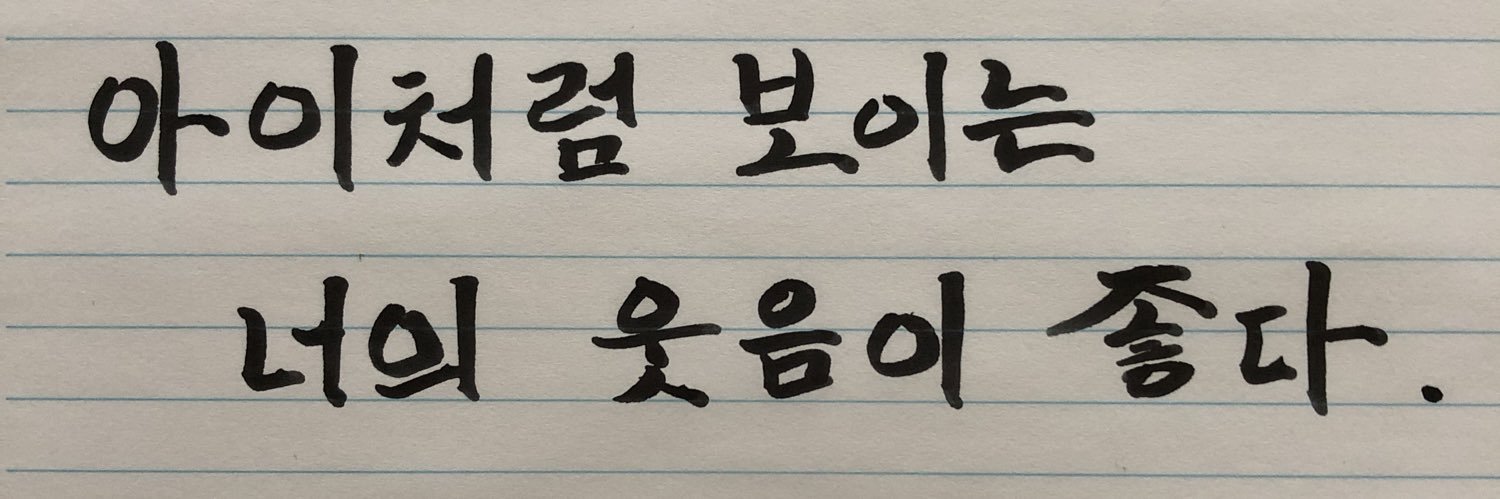 아이처럼 보이는
너의 웃음이 좋다.